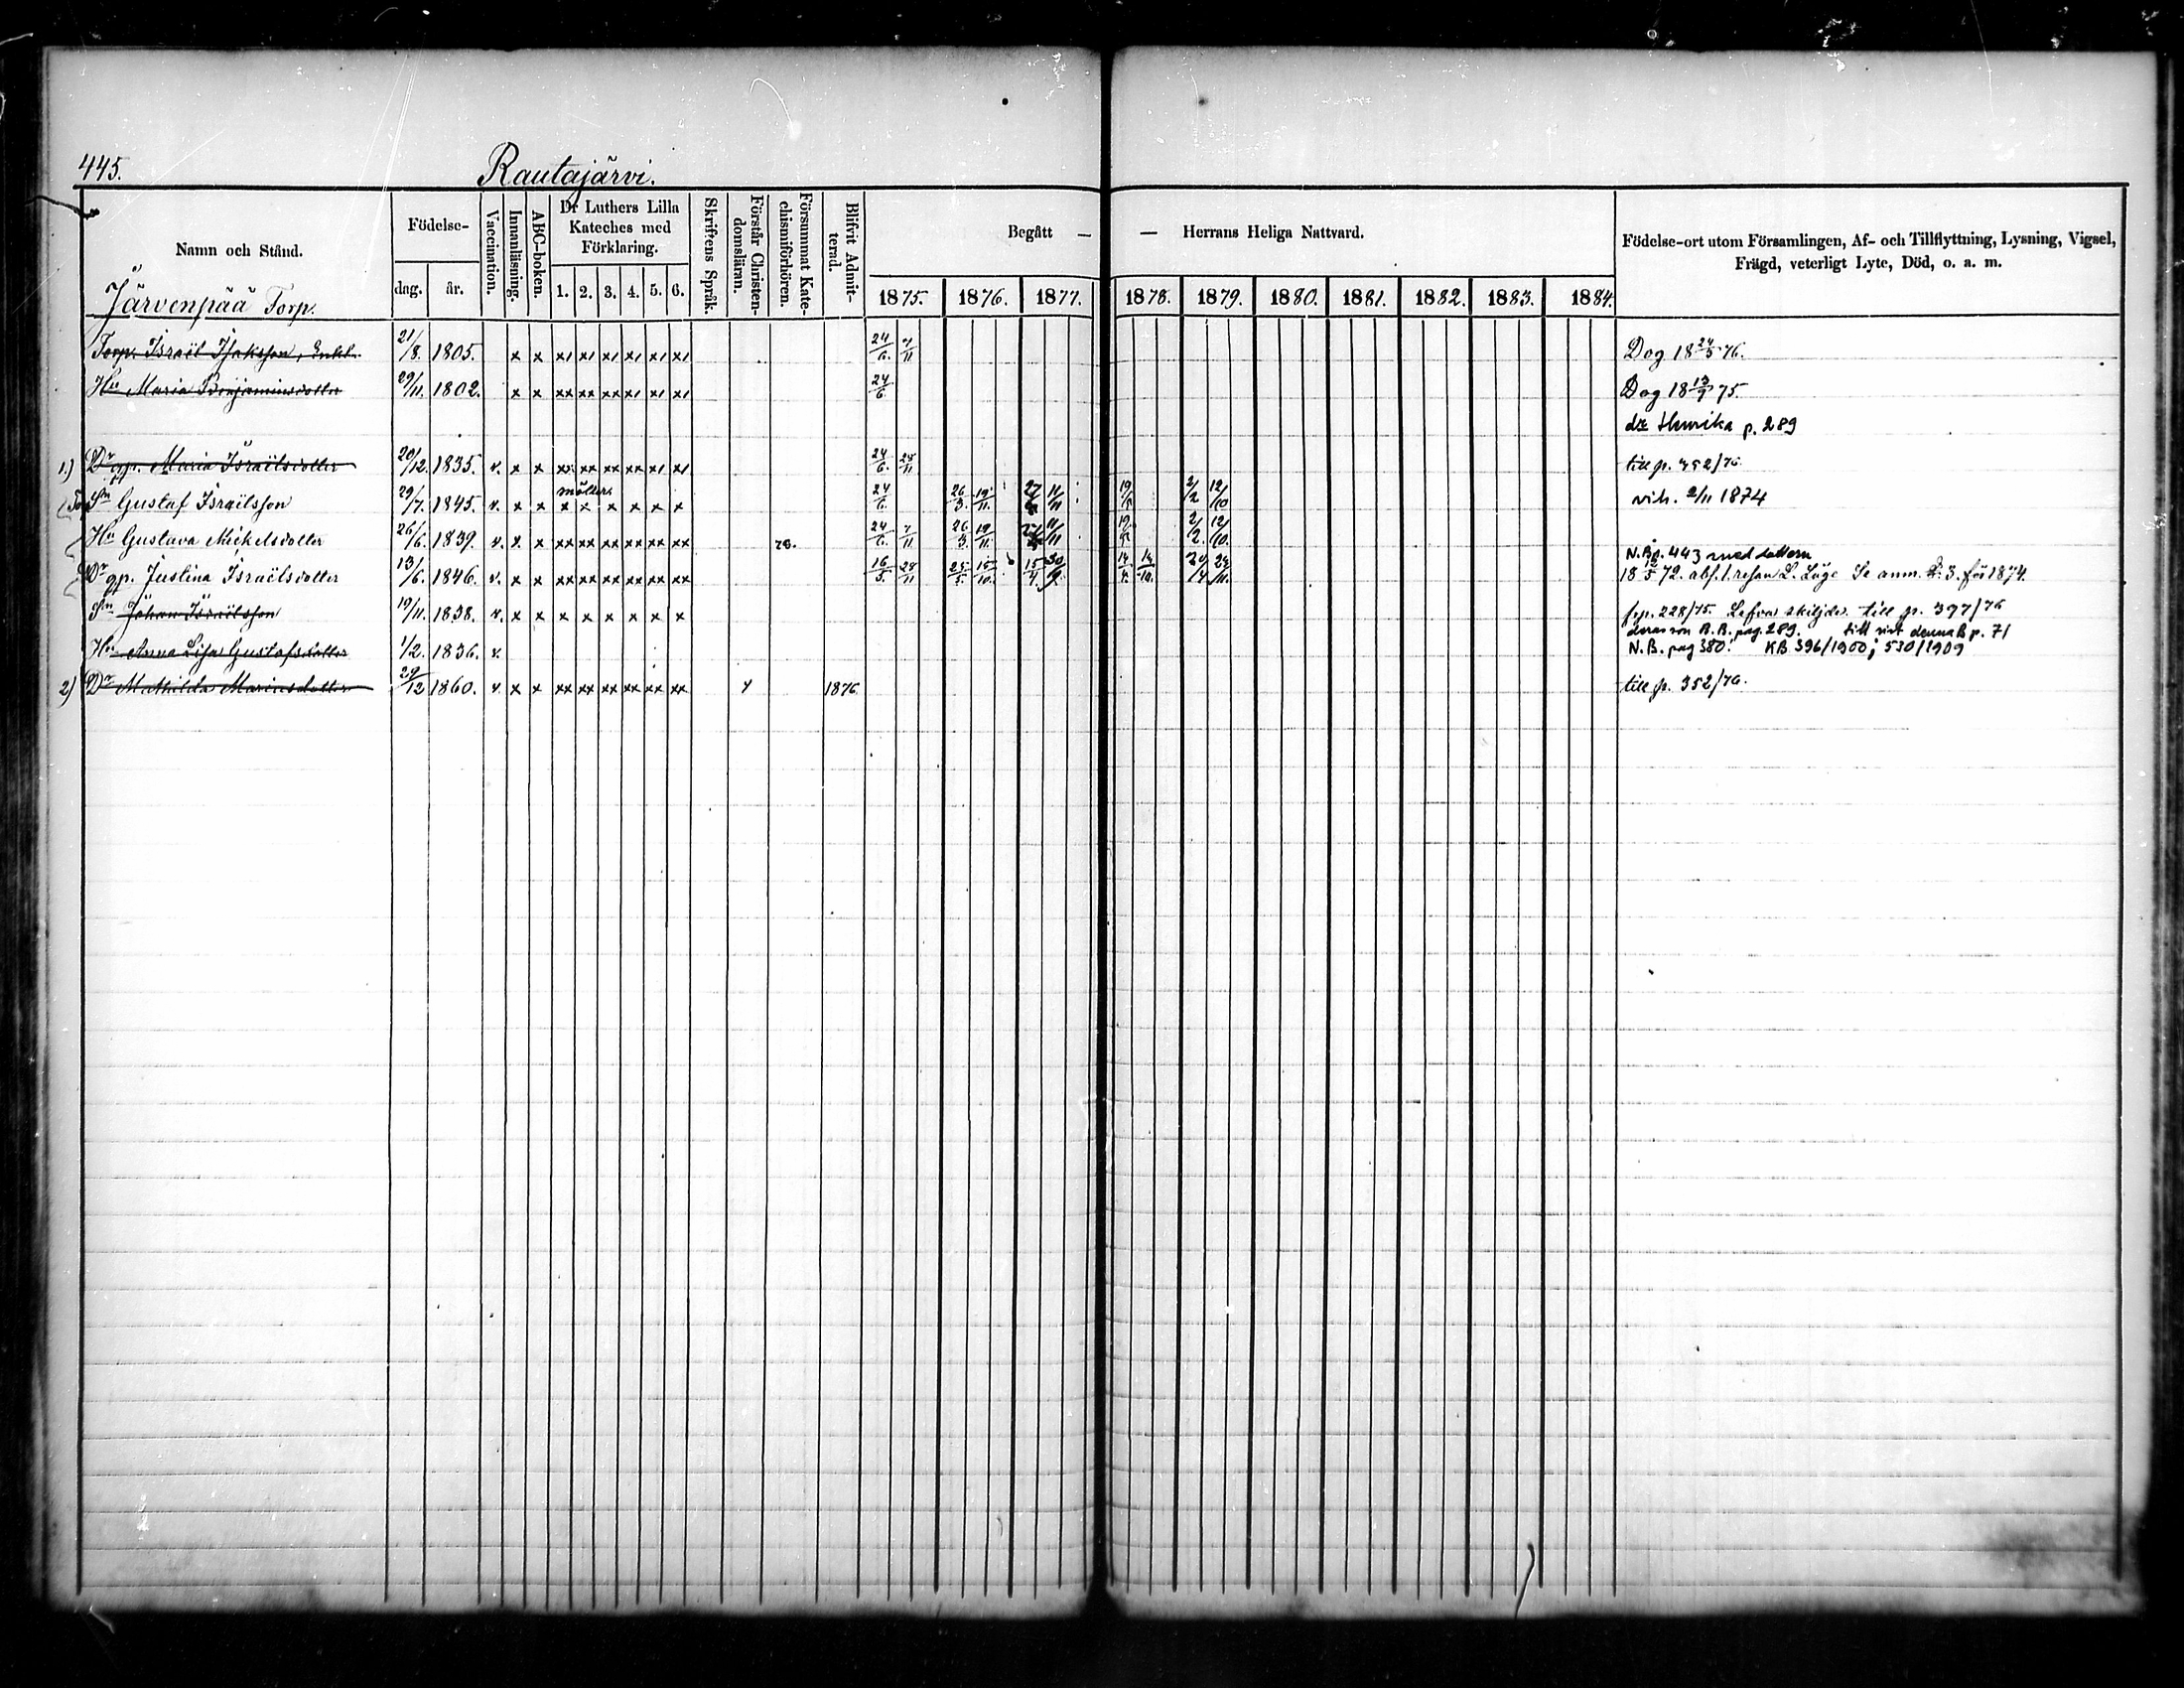 445.
Rautajärvi.
Namn och Stånd.
Järvenpää Torp.
Födelse-
dag. år.
Vaccination.
Innanläsning.
ABC-boken.
Dr Luthers Lilla
Kateches med
Förklaring.
1. 2. 3. 4. 5. 6.
Skriftens Språk.
Förstår Christen-
domsläran.
Försummat Kate-
chismiförhören.
Blifvit Admit-
terad.
Begått — — Herrans Heliga Nattvard.
1875. 1876. 1877. 1878. 1879. 1880. 1881. 1882. 1883. 1884.
Födelse-ort utom Församlingen, Af- och Tillflyttning, Lysning, Vigsel,
Frägd, veterligt Lyte, Död, o. a. m.
Torp. Israël Isaksson, Enkl. 21/8. 1805. x x x1 x1 x1 x1 x1 x1 24/6. 7/11 Dog 18 24/5 76.
Hu Maria Benjaminsdotter 29/11. 1802. x x xx xx xx x1 x1 x1 24/6. Dog 18 13/9 75.
p. 289
1.) Dr gp. Maria Israëlsdotter 20/12. 1835. v. x x xx xx xx xx x1 x1 24/6. 28/11 till p. 352/76
Sn Gustaf Israëlsson 29/7. 1845. v. x x x x x x x x 24/6. 26/3. 19/11. 11/11 19/5 2/2 12/10 vih. 2/11 1874
Hu Gustava Mickelsdotter 26/6. 1839. v. x. x xx xx xx xx xx xx 76. 24/6. 7/11 26/3. 19/11. 11/11 19/5 2/2. 12/10.
N.B. p. 443 med dottern
Dr gp. Justina Israëlsdotter 13/6. 1846. v. x x xx xx xx xx xx xx 16/5. 28/11 25/5. 15/10. 15/4. 30/9. 14/4. 20/4. 18 12/5 72. abs. 1. resan L. Läge Se anm. 3. för 1874.
Sn Johan Israëlsson 19/11. 1838. v. x x x x x x x x frp. 228/75. Lefva skiljda. till p. 397/76
deras son R.B. pag. 289. till sist denna B p. 71
Hu Anna Lisa Gustafsdotter 1/2. 1836. v. N.B. pag 380. KB 396/1900; 530/1909
2) Dr Mathilda Mariasdotter 29/12 1860. v. x x xx xx xx xx xx xx 1876. till p. 352/76.